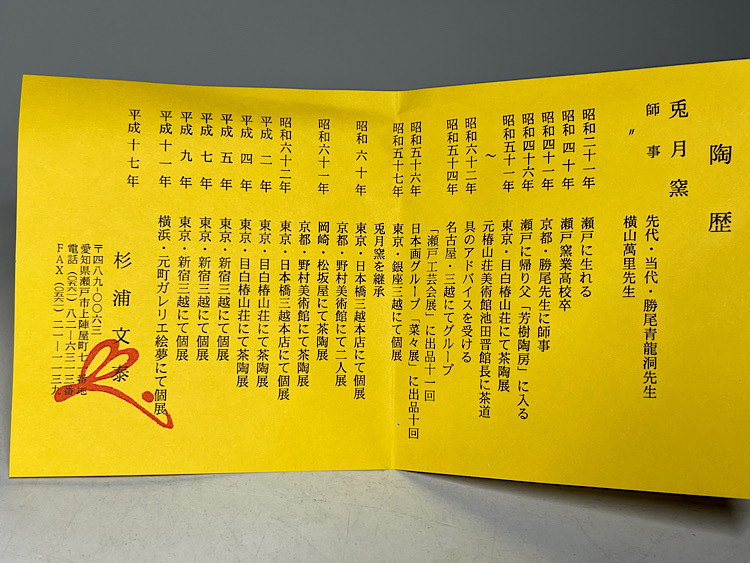 陶歴
兎月窯
師事 先代・当代・勝尾青龍洞先生
〃 横山萬里先生
昭和二十一年 瀬戸に生れる
昭和四十年 瀬戸窯業高校卒
昭和四十一年 京都・勝尾先生に師事
昭和四十六年 瀬戸に帰り父「芳樹陶房」に入る
昭和五十一年 東京・目白椿山荘にて茶陶展
〜 元椿山荘美術館池田晋館長に茶道
昭和六十二年 具のアドバイスを受ける
昭和五十四年 名古屋・三越にてグループ
「瀬戸工芸会展」に出品十一回
昭和五十六年 日本画グループ「菜々展」に出品十回
昭和五十七年 東京・銀座三越にて個展
兎月窯を継承
昭和六十年 東京・日本橋三越本店にて個展
京都・野村美術館にて二人展
昭和六十一年 岡崎・松坂屋にて茶陶展
京都・野村美術館にて茶陶展
昭和六十二年 東京・日本橋三越本店にて個展
平成二年 東京・目白椿山荘にて茶陶展
平成四年 東京・目白椿山荘にて茶陶展
平成五年 東京・新宿三越にて個展
平成七年 東京・新宿三越にて個展
平成九年 東京・新宿三越にて個展
平成十一年 横浜・元町ガレリエ絵夢にて個展
平成十七年
杉浦文泰
〒四八九-〇〇六三
愛知県瀬戸市上陣屋町七一番地
電話(〇五六一)八二-六三一三番
FAX(〇五六一)二一-一一三九